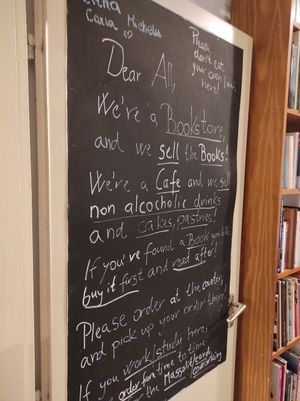 Michelle
Carla
Please
don't eat
your own food
here!
Dear All,
We're a Bookstore,
and we sell the Books!
We're a Cafe and we sell
non alcocholic drinks
and cakes, pastries!
If you've found a Book you like
buy it first and read after!
Please order at the counter,
and pick up your order there!
If you work/study here,
order from time to time
the